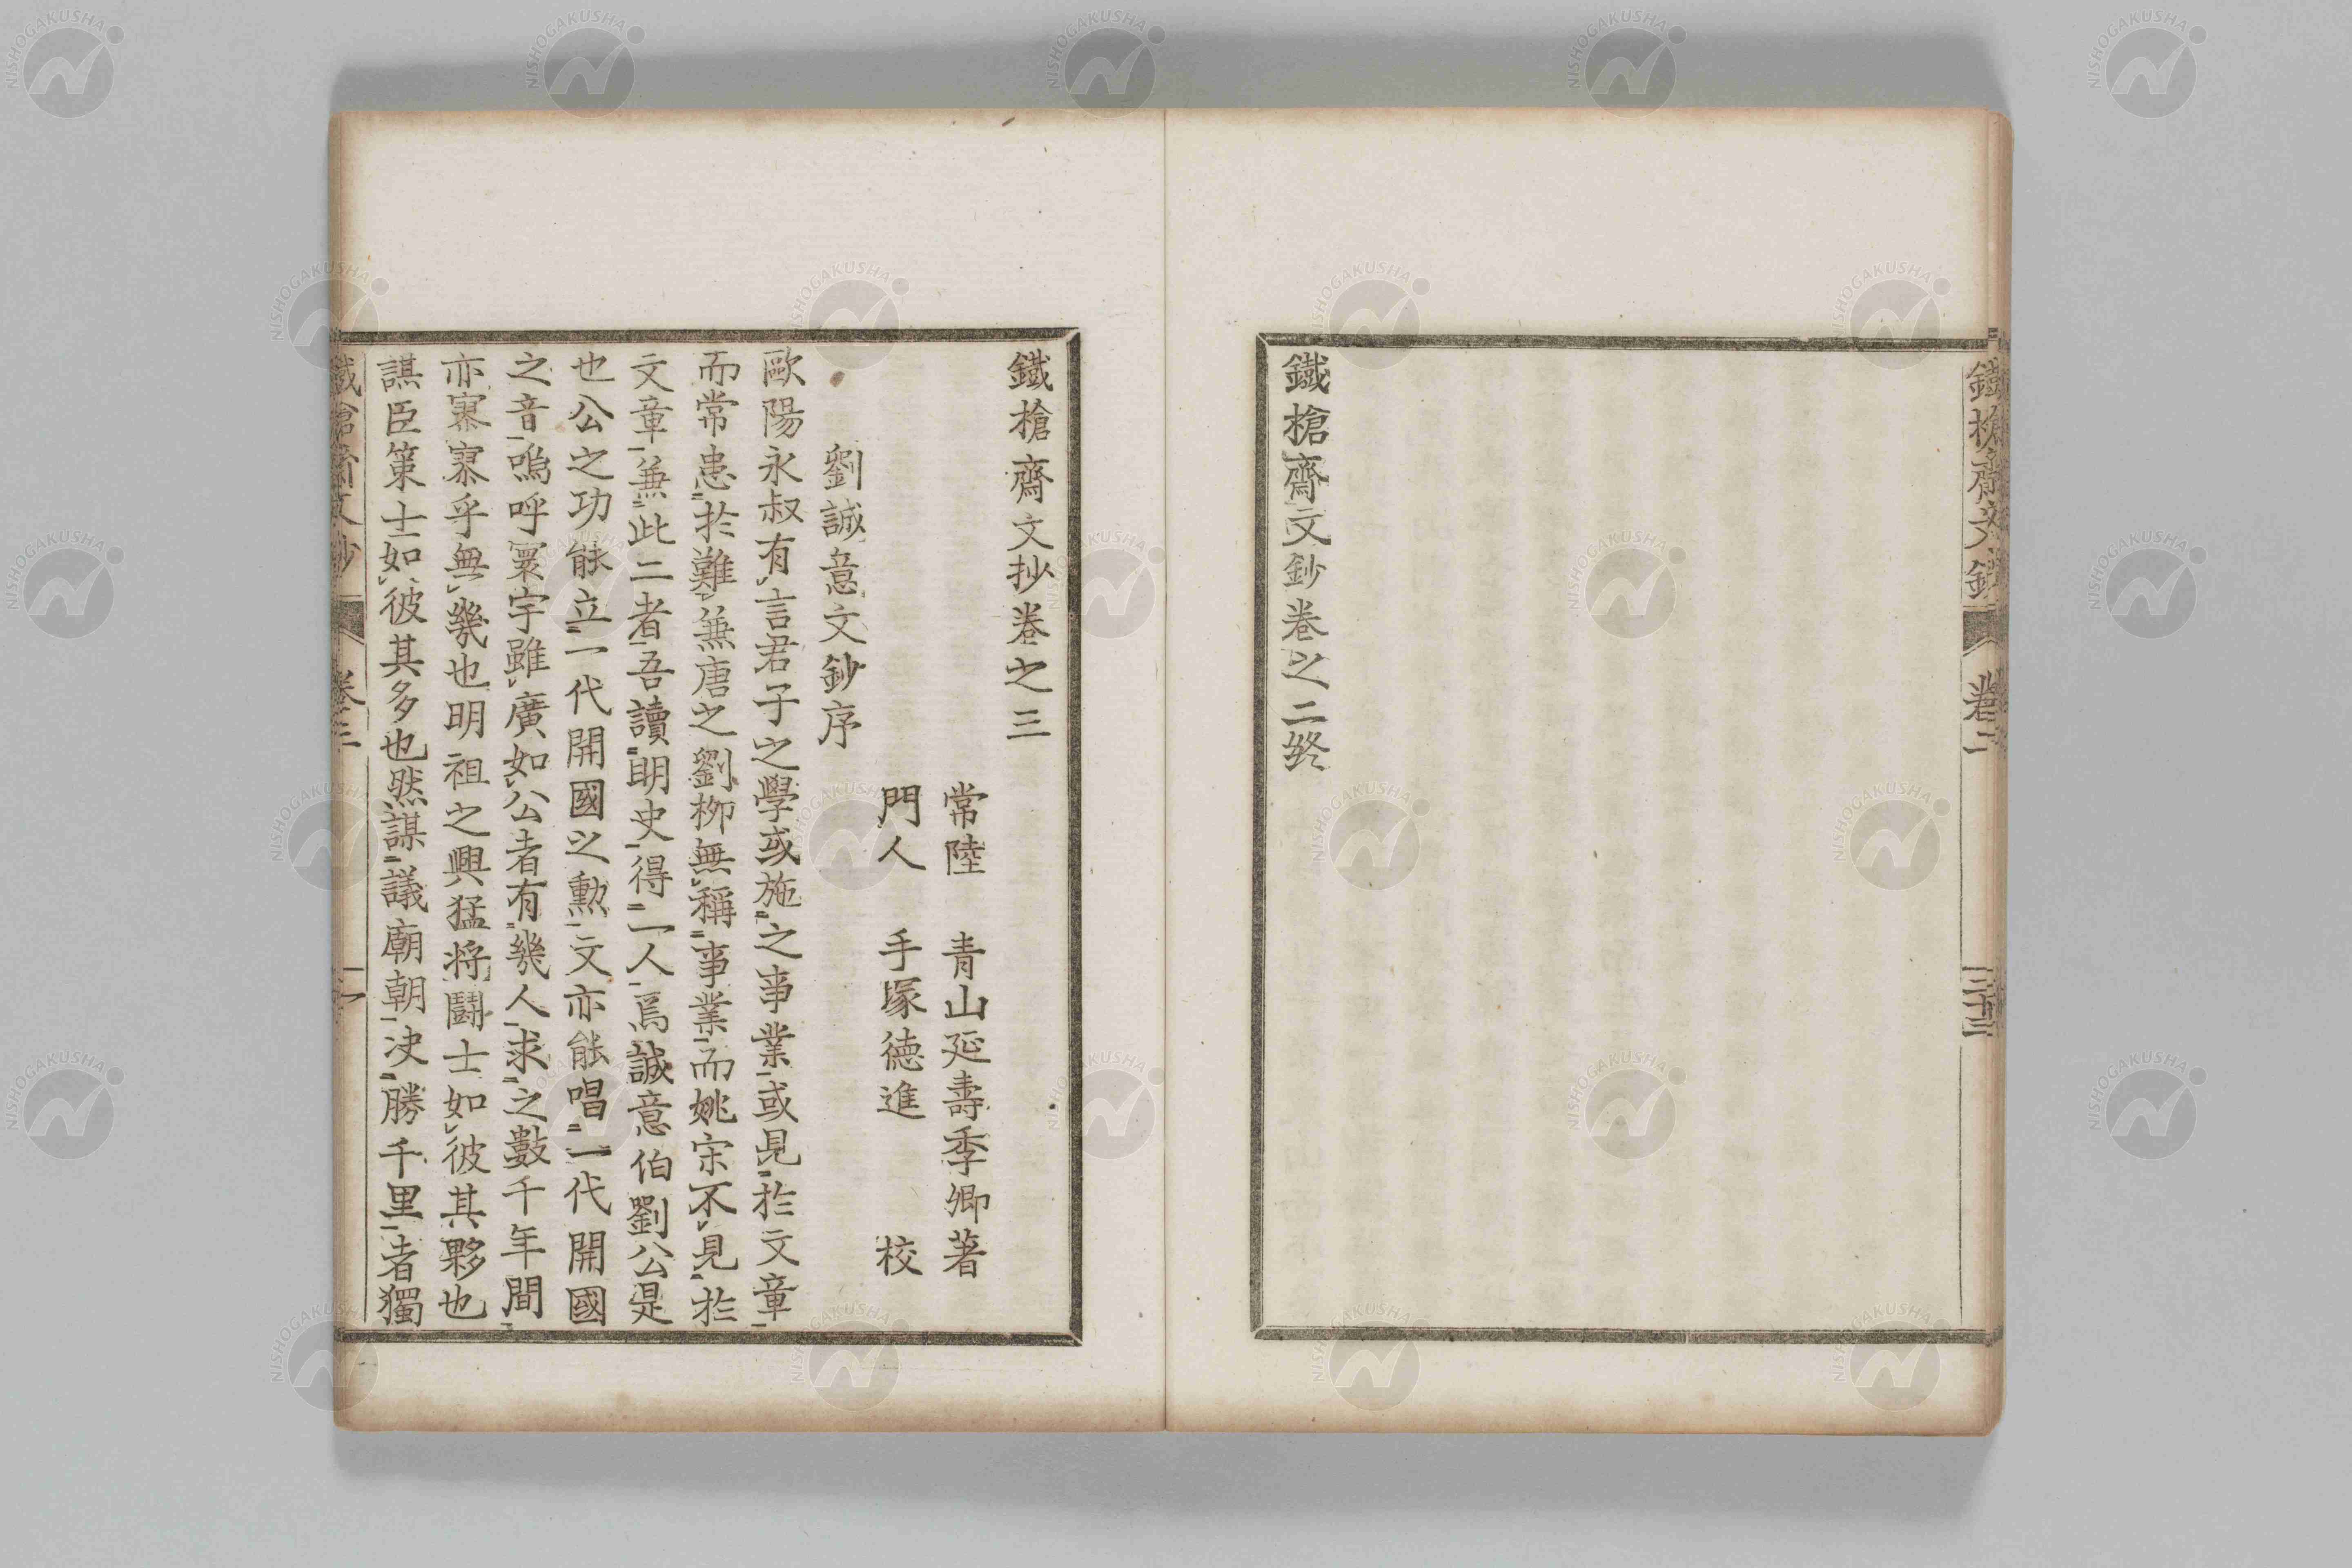 鐵槍齋文鈔
卷二
三十三
鐵槍齋文鈔卷之二終
鐵槍齋文抄卷之三
常陸 青山延壽季卿著
門人 手塚德進 校
劉誠意文鈔序
歐陽永叔有言君子之學或施之事業或見於文章
而常患於難兼唐之劉柳無稱事業而姚宋不見於
文章兼此二者吾讀明史得一人焉誠意伯劉公是
也公之功能立一代開國之勲文亦能唱一代開國
之音嗚呼寰宇雖廣如公者有幾人求之數千年間
亦寥寥乎無幾也明祖之興猛將鬪士如彼其夥也
謀臣策士如彼其多也然謀議廟朝決勝千里者獨
鐵槍齋文鈔
卷三
一
NISHOGAKUSHA